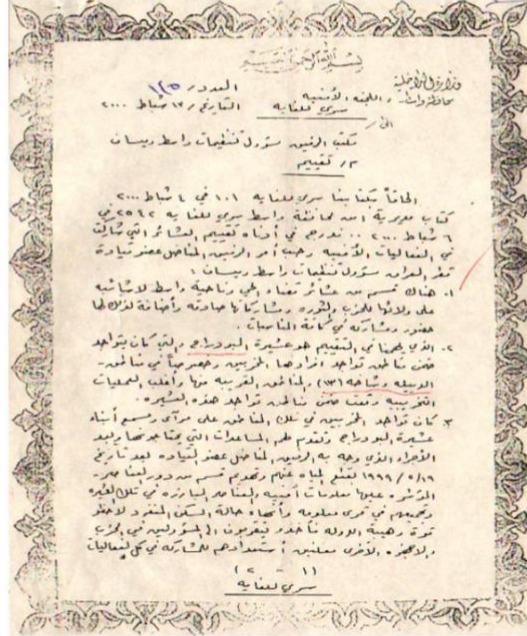 بسم الله الرحمن الرحيم
وزارة الداخلية
محافظة واسط / اللجنة الأمنية
العدد / ١٢٥
سري للغاية
التاريخ / ١٢ شباط ٢٠٠٠
الى /
مكتب الرفيق مسؤول تنظيمات واسط وميسان
م / تقييم
الحاقاً بكتابنا سري للغاية ١٠١ في ٤ شباط ٢٠٠٠
كتاب مديرية امن محافظة واسط سري للغاية ٢٥٤٢ في
٦ شباط ٢٠٠٠ .. ندرج في أدناه تقييم العشائر التي شاركت
في الفعاليات الأمنية وحسب أمر الرفيق المناضل عضو قيادة
قطر العراق مسؤول تنظيمات واسط وميسان :
١. هناك قسم من عشائر قضاء الحي وناحية واسط لا شائبة
على ولائها للحزب والثورة ومشاركاتها صادقة وأضافة لذلك لها
حضور ومشاركة في كافة المناسبات .
٢. الذي يهمنا في التقييم هو عشيرة البودراج والتي كان يتواجد
ضمن مناطق تواجد افرادها المخربين وخصوصاً في مناطق
الدبيله وشاخه (١٣) والمناطق القريبه منها واغلب العمليات
التخريبيه وقعت ضمن مناطق تواجد هذه العشيره .
٣. كان تواجد المخربين في تلك المناطق على مرآى ومسمع أبناء
عشيرة البودراج وتقدم لهم المساعدات التي يحتاجونها وبعد
الأجراء الذي وجه به الرفيق المناضل عضو القيادة بعد تاريخ
١٩/٥/١٩٩٩ لقطع المياه عنهم وتهديم قسم من دور العناصر
المؤشره عليها معلومات أمنيه والعناصر البارزه في تلك العشيره
وتجميعهم في قرى معلومه وأنهاء حالة السكن المنفرد لاحظوا
قوة وهيبة الدوله فأخذوا يتقربون الى المسؤولين في الحزب
والاجهزه الاخرى معلنين أستعدادهم للمشاركة في كل الفعاليات
( ١ - ٢ )
سري للغاية